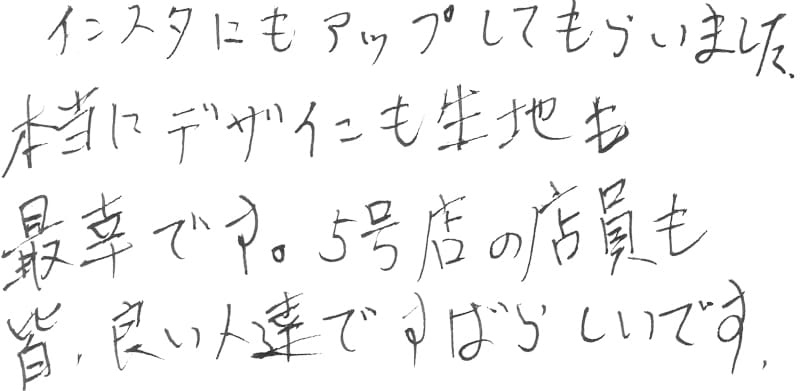 インスタにもアップしてもらいました、
本当にデザインも生地も
最幸です。5号店の店員も
皆、良い人達ですばらしいです、